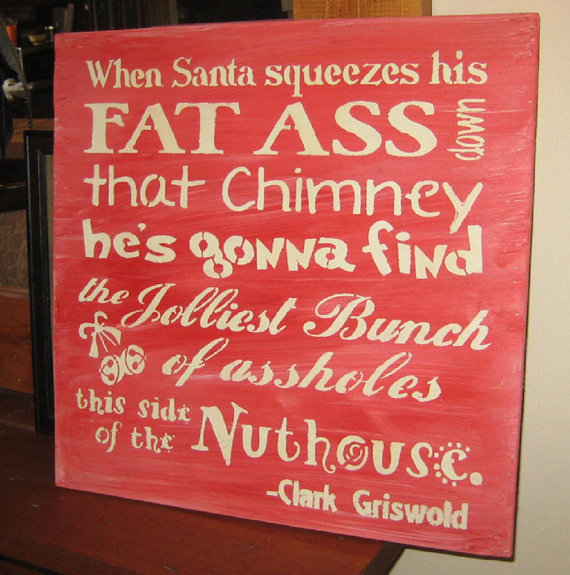 When Santa squeezes his
FAT ASS down
that Chimney
he's gonna find
the Jolliest Bunch
of assholes
this side
of the Nuthouse.
-Clark Griswold